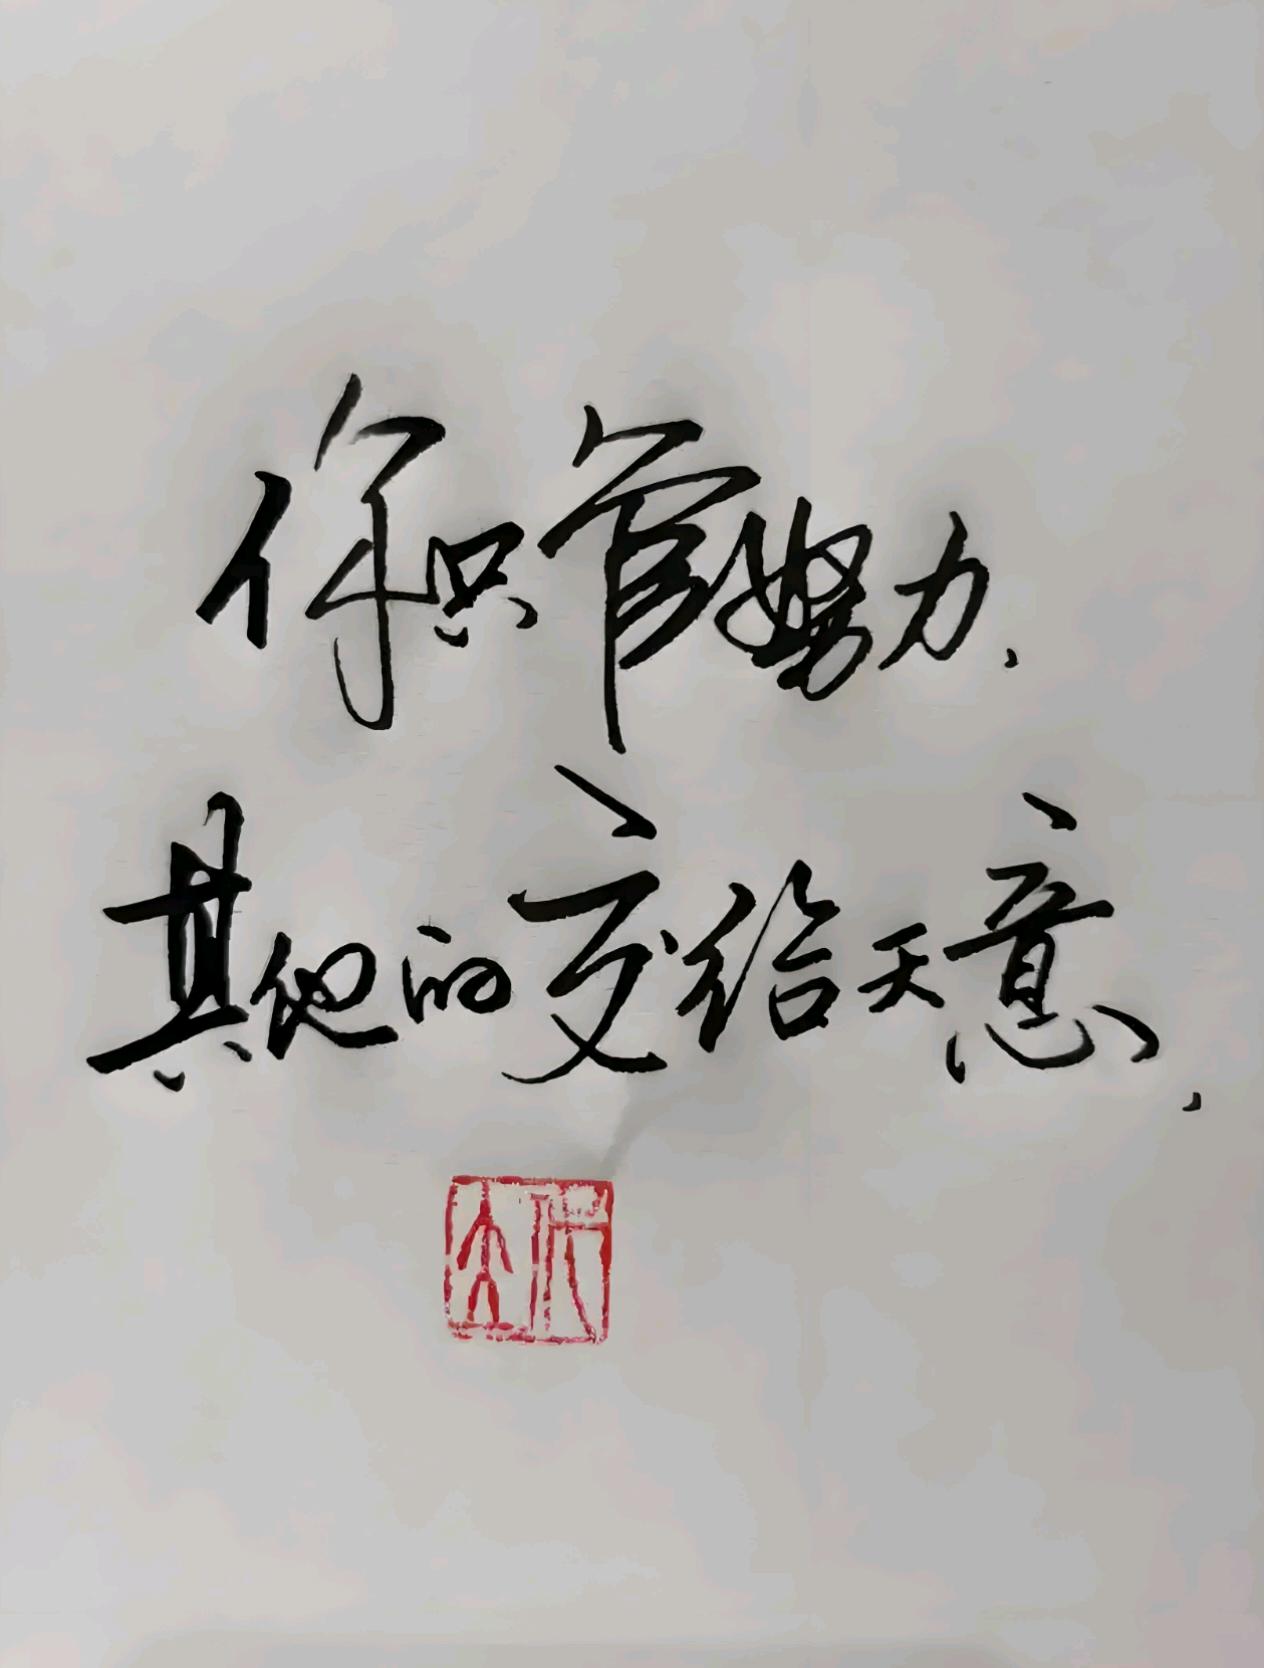 你只管努力、
其他的交给天意、